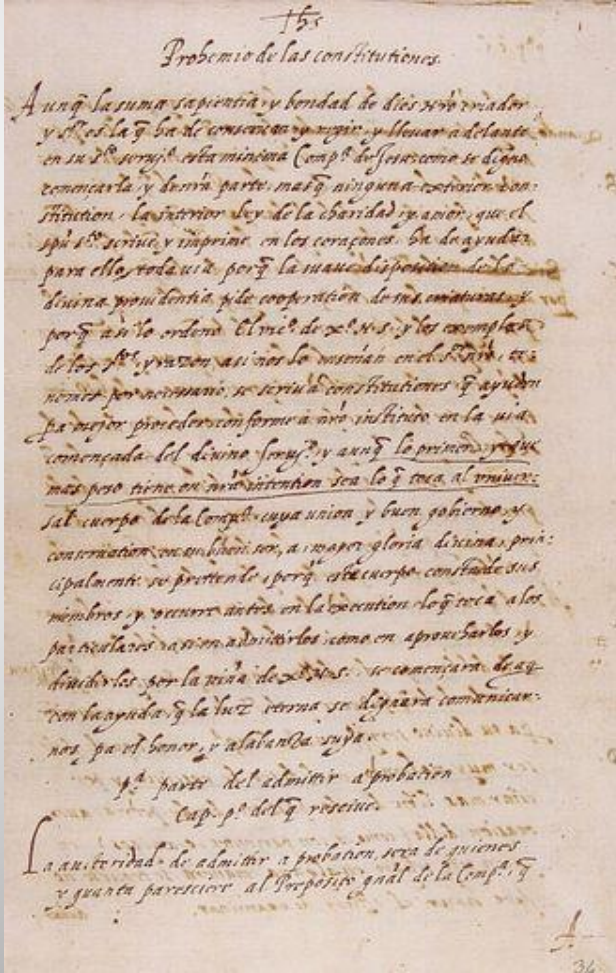 Jhs
Prohemio de las constitutiones.
Aunq̃ la suma sapientia, y bondad de dios nr̃o criador
y sᵒʳ es la q̃ ha de conseruar y regir, y lleuar adelante
en su sᵗᵒ seruiᵒ esta minima Compᵃ de Jesu, como se digno
comencarla, y de nr̃a parte, mas q̃ ninguna exterior con:
stitution, la interior ley de la charidad, y amor, que el
spũ sᵗᵒ scriue, y imprime en los coraçones, ha de ayudar
para ello, toda uia porq̃ la suaue disposition de la
diuina prouidentia pide cooperation de sus criaturas, y
porq̃ asi lo ordeno El vicᵒ de xᵒ N. S. y los exemplos
de los sᵗᵒˢ, y razon, asi nos lo enseñan en el sᵒʳ nr̃o, te:
nemos por necessario, se scriuã constitutiones, q̃ ayuden
pa mejor proceder conforme a nr̃o instituto en la uia
començada del diuino seruiᵒ, y aunq̃ lo primero, y que
mas peso tiene en nr̃a intention sea lo q̃ toca al vniuer-
sal cuerpo de la Compᵃ cuya union, y buen gobierno, y
conseruation en su buen ser, a mayor gloria diuina, prin:
cipalmente se prettende, porq̃ este cuerpo consta de sus
miembros, y occurre antes en la execution lo q̃ toca a los
particulares, asi en admittirlos, como en aprouecharlos, y
diuidirlos por la uiña de xᵒ N. S. se començara de aq
con la ayuda, q̃ la luz eterna se dignara comunicar-
nos, pa el honor, y alabanza suya.
pᵃ parte del admittir a probation
Cap. pᵒ del q̃ resciue.
La autoridad de admittir a probation, sera de quienes
y quanta paresciere al Preposito gnãl de la Compᵃ, q̃
A
34